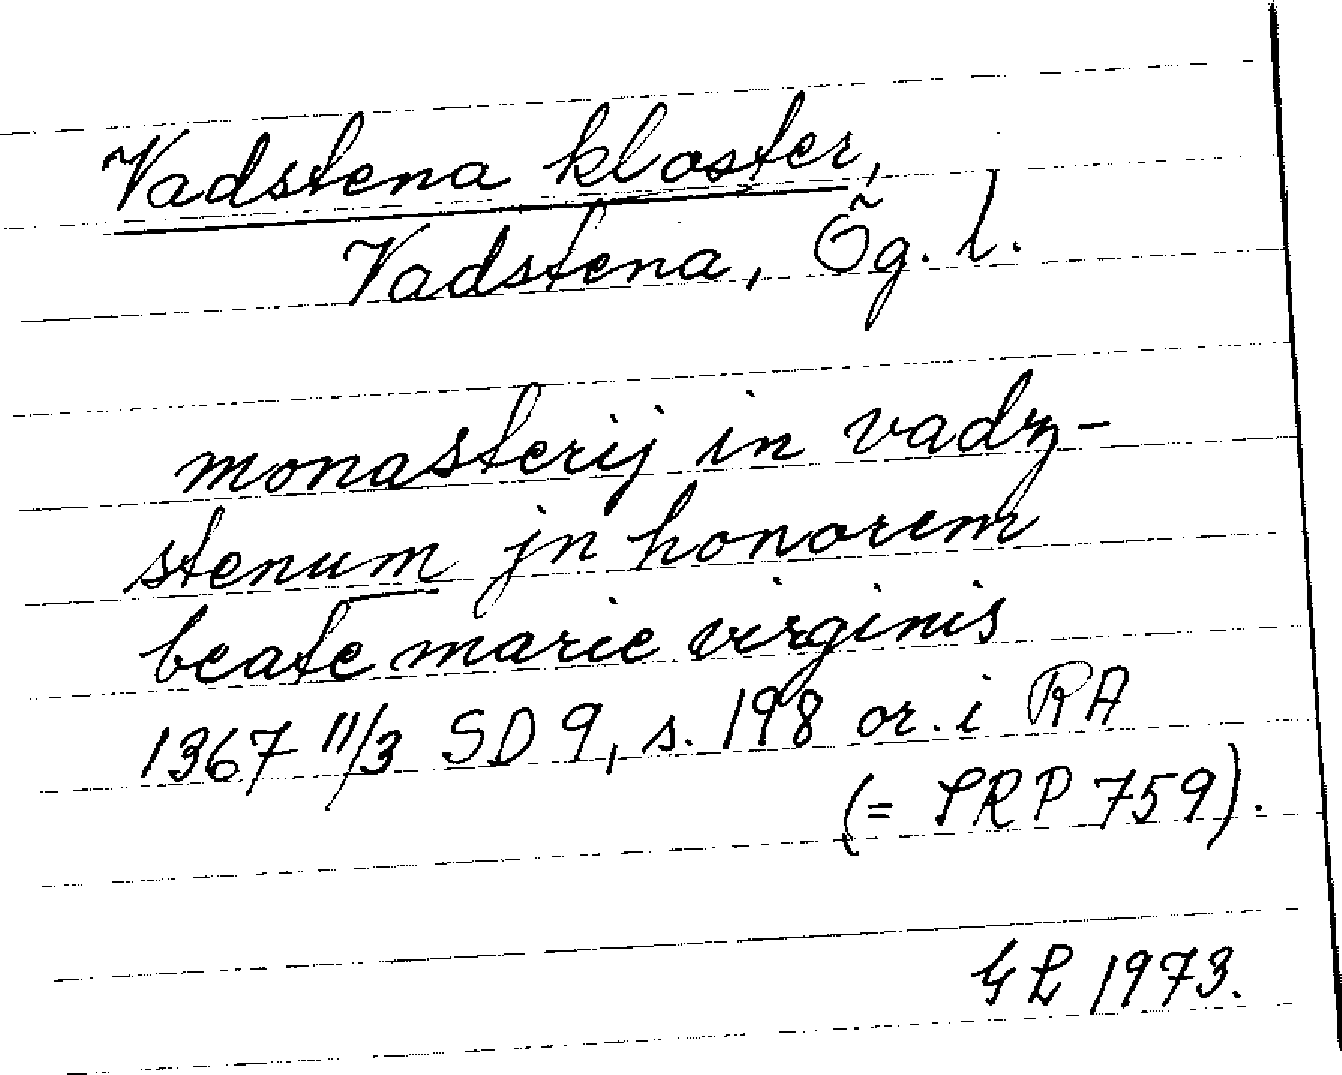 Vadstena kloster,
Vadstena, Ög. l.
monasterij in vadz-
stenum jn honorem
beate marie virginis
1367 11/3 SD 9, s. 198 or. i RA
(= SRP 759).
GL 1973.